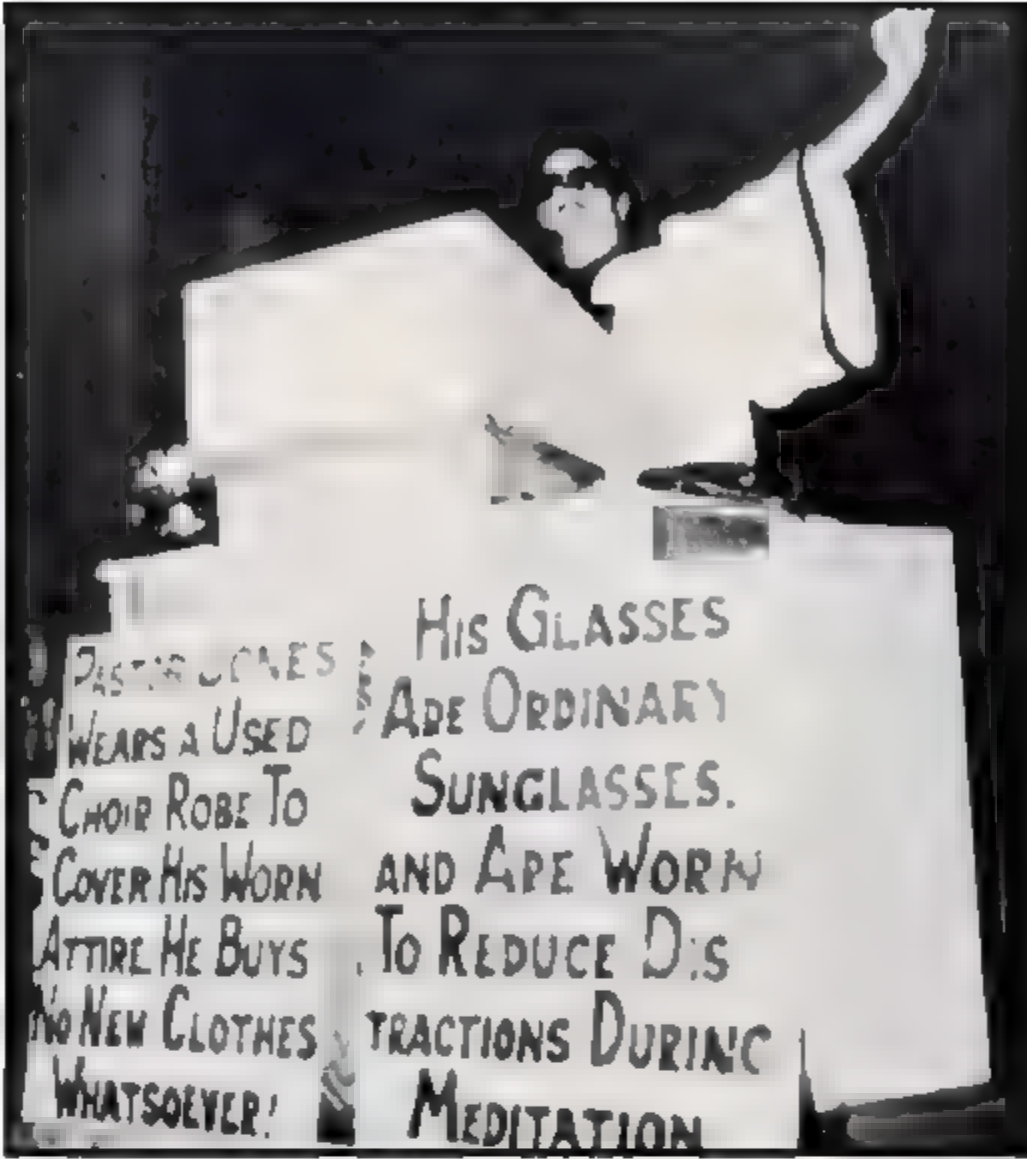 PASTOR JONES
WEARS A USED
CHOIR ROBE TO
COVER HIS WORN
ATTIRE HE BUYS
NO NEW CLOTHES
WHATSOEVER!
HIS GLASSES
ARE ORDINARY
SUNGLASSES.
AND ARE WORN
TO REDUCE DIS
TRACTIONS DURING
MEDITATION